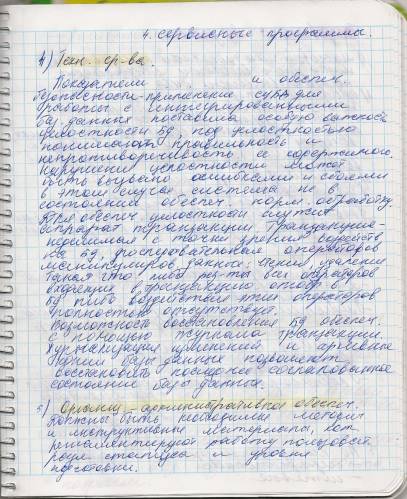 4. сервисные программы.
4) Техн. ср-ва.
Показатели и обеспеч.
применение СУБД для
работы с интегрированными
баз. данных поставила особую важность
целостности БД, под целостностью
понимают правильность и
непротиворечивость ее содержимого.
Нарушение целостности может
быть вызвано ошибками и сбоями
в этом случае система не в
состоянии обеспеч. норм. обработку
Для обеспеч. целостности служит
аппарат транзакции. Транзакция -
неделимая с точки зрения
на БД последовательная операторов
манипулиров. данных
такая что либо рез-ты всех операторов
входящие в транзакцию отобр. в
БД либо воздействие этих операторов
полностью отсутствует.
Возможность восстановления БД обеспеч.
с помощью журнала транзакции
Журнализация изменений и архивные
копии базы данных позволяет
восстановить последнее согласованное
состояние базы данных.
5) Организ.-административное обеспеч.
Должны быть необходимы методич.
и инструктивные материалы, кот.
регламентируют работу пользоват.
подготовки.